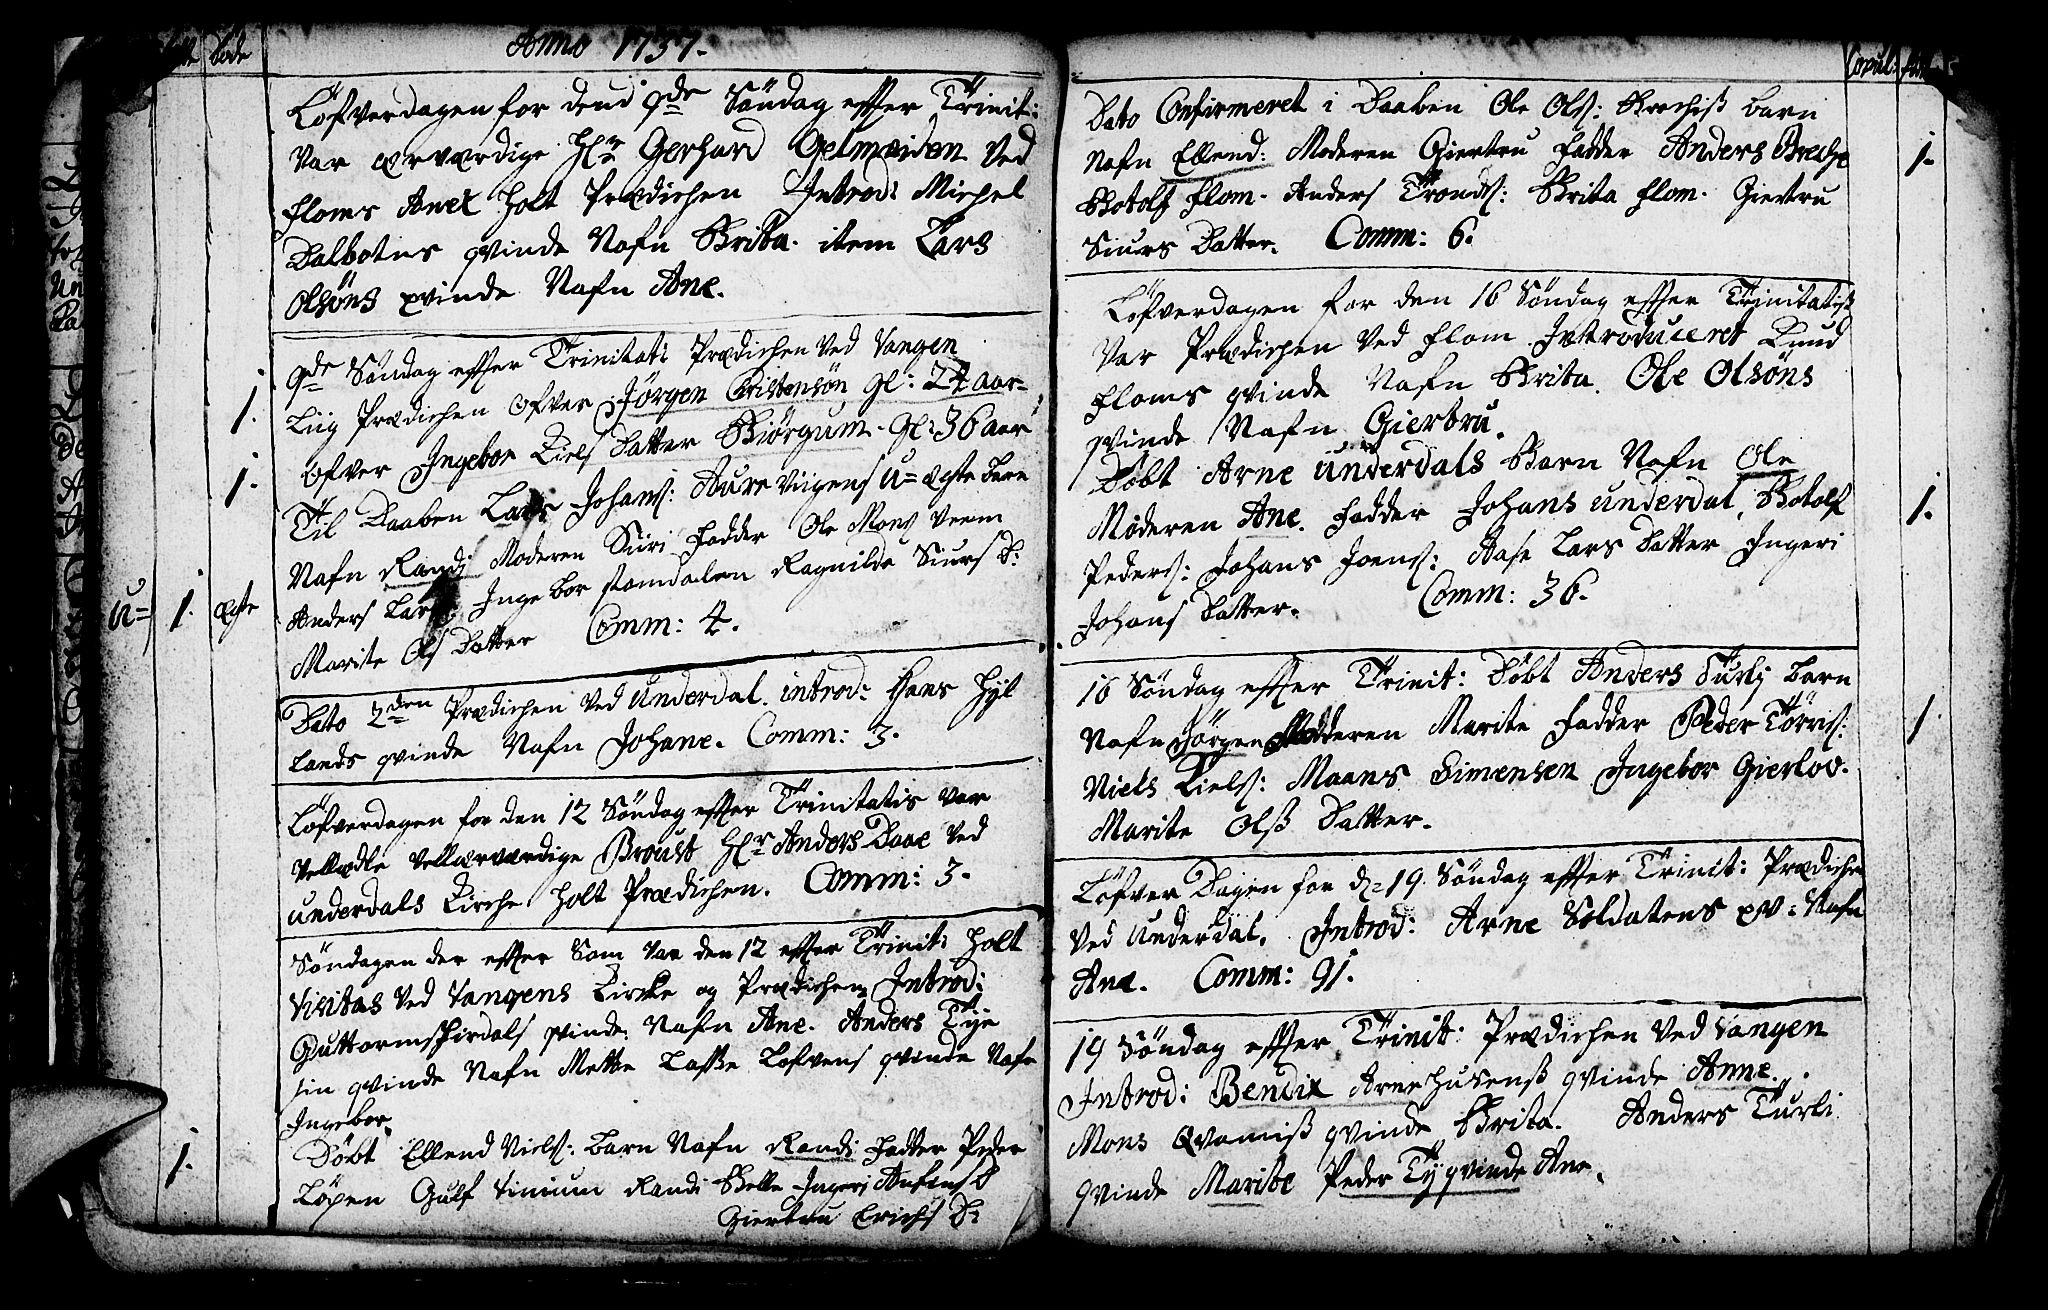 Døde
Anno 1737.
Löfverdagen for dend 9de Söndag effter Trinit:
var ærværdige Hr Gerhard Gelmeiden ved
Floms Anex holt Prædichen Introd: Michel
Dalbotns qvinde Nafn Brita. item Lars
Olsöns qvinde Nafn Ane.
9de Söndag effter Trinitat: Prædichen ved Vangen
1. Liig Prædichen ofver Jörgen Christensön gl: 24 aar
1. ofver Ingebor Kiels Datter Biörgum. gl: 36 aar
Til Daaben Lars Johans: Aure Viigens U=ægte barn
Nafn Randi Moderen Siiri Fadder Ole Mons Veem
U= 1. ægte Anders Lars: Ingebor Ragnilda Siurs D:
Marite Ols Datter Comm: 4.
Dato 2den Prædichen ved Underdal. introd: Hans Hyl
lands qvinde Nafn Johane. Comm: 3.
Löfverdagen for den 12 Söndag effter Trinitatis var
Velædle velærværdige Proust Hr Anders Daae ved
Underdals Kirche holt Prædichen. Comm: 3.
Söndagen der effter som var den 12 effter Trinit: holt
Visitas ved Vangens Kirke og Prædichen Introd:
Guttorm Skirdals qvinde: Nafn Ane. Anders Tye
sin qvinde Nafn Mette Lasse Lofvens qvinde Nafn
Ingebor.
1. Döbt Ellend Niels: barn Nafn Randi Fadder Peder
Löpen Gulf Vinium Randi Belle Ingeri Anfins D
Giertru Erichs D:
Copul:
Dato Confirmeret i Daaben Ole Ols: Brechis barn
Nafn Ellend: Moderen Giertru Fadder Anders Breche 1.
Botolf Flom. Anders Tronds: Brita Flom. Giertru
Siurs Datter. Comm: 6.
Löfverdagen for den 16 Söndag effter Trinitatis
var Prædichen ved Flom Introduceret Knud
Floms qvinde Nafn Brita. Ole Olsöns
qvinde Nafn Giertru.
Döbt Arne Underdals Barn Nafn Ole
Moderen Ane. Fadder Johans Underdal, Botolf 1.
Peders: Johans Joens: Aase Lars Datter Ingeri
Johans Datter. Comm: 36.
16 Söndag effter Trinit: Döbt Anders Turly barn
Nafn Jörgen Moderen Marite Fadder Peder Törris: 1
Niels Kiels: Maans Simensen Ingebor Gierlov.
Marite Ols Datter.
Löfver Dagen for d: 19. Söndag effter Trinit: Prædichen
ved Underdal. Introd: Arne Soldatens qv: Nafn
Ane. Comm: 91.
19 Söndag effter Trinit: Prædichen ved Vangen
Introd: Bendix Arnehusens qvinde Anne.
Mons Qvamis qvinde Brita. Anders Turli
qvinde Marite Peder Ty qvinde Ane.